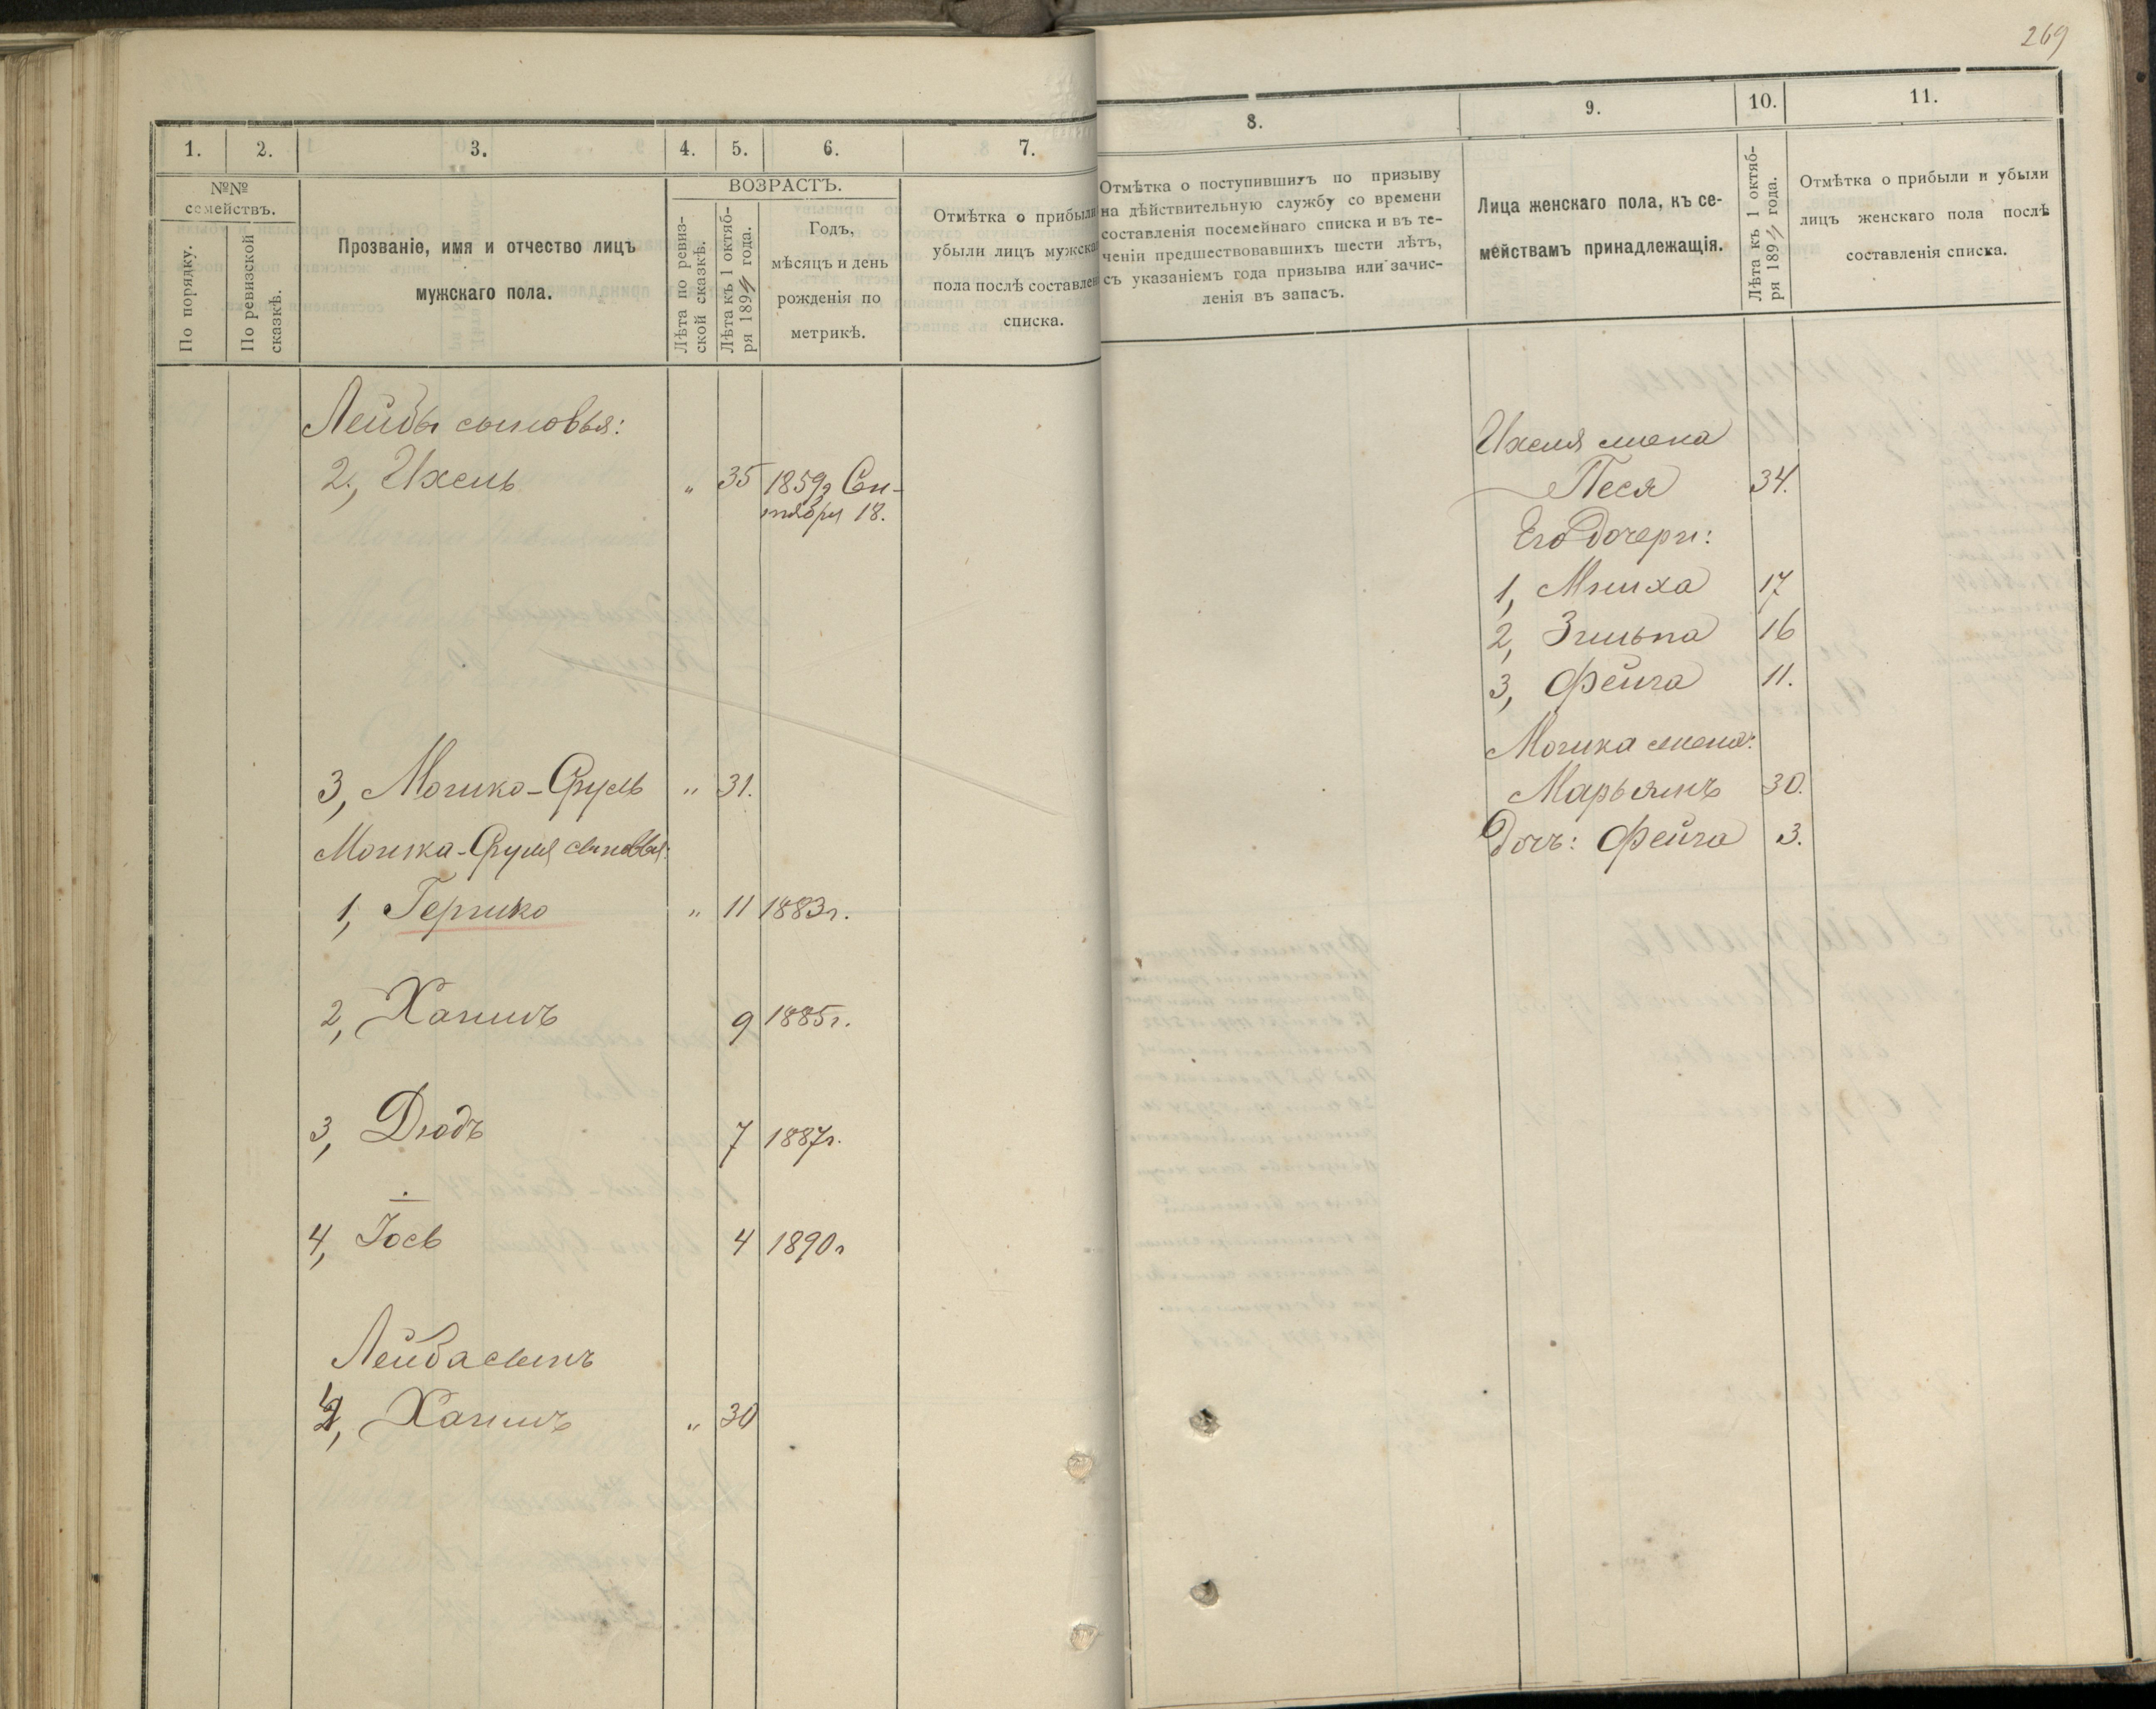 269
1.
2.
3.
4.
5.
6.
7.
№№
семействъ.
По порядку.
По ревизской
сказкѣ.
Прозваніе, имя и отчество лицъ
мужскаго пола.
ВОЗРАСТЪ.
Лѣта по ревиз-
ской сказкѣ.
Лѣта къ 1 октяб-
ря 1894 года.
Годъ,
мѣсяцъ и день
рожденія по
метрикѣ.
Отмѣтка о прибыли
убыли лицъ мужска
пола послѣ составлен
списка.
Лейбы сыновья:
2, Ихель " 35 1859г Сен-
тября 18.
3, Мошко-Сруль " 31.
Мошка-Сруля сыновья:
1, Гершко " 11 1883г.
2, Хаимъ 9 1885г.
3, Дюдъ 7 1887г.
4, Іось 4 1890г
Лейба сынъ
4, Хаимъ " 30
8.
9.
10.
11.
Отмѣтка о поступившихъ по призыву
на дѣйствительную службу со времени
составленія посемейнаго списка и въ те-
ченіи предшествовавшихъ шести лѣтъ,
съ указаніемъ года призыва или зачис-
ленія въ запасъ.
Лица женскаго пола, къ се-
мействамъ принадлежащія.
Лѣта къ 1 октяб-
ря 1894 года.
Отмѣтка о прибыли и убыли
лицъ женскаго пола послѣ
составленія списка.
Ихеля жена
Песя 34.
Его дочери:
1, Миха 17
2, Зильпа 16
3, Фейга 11.
Мошка жена:
Марьямъ 30.
Дочь: Фейга 3.